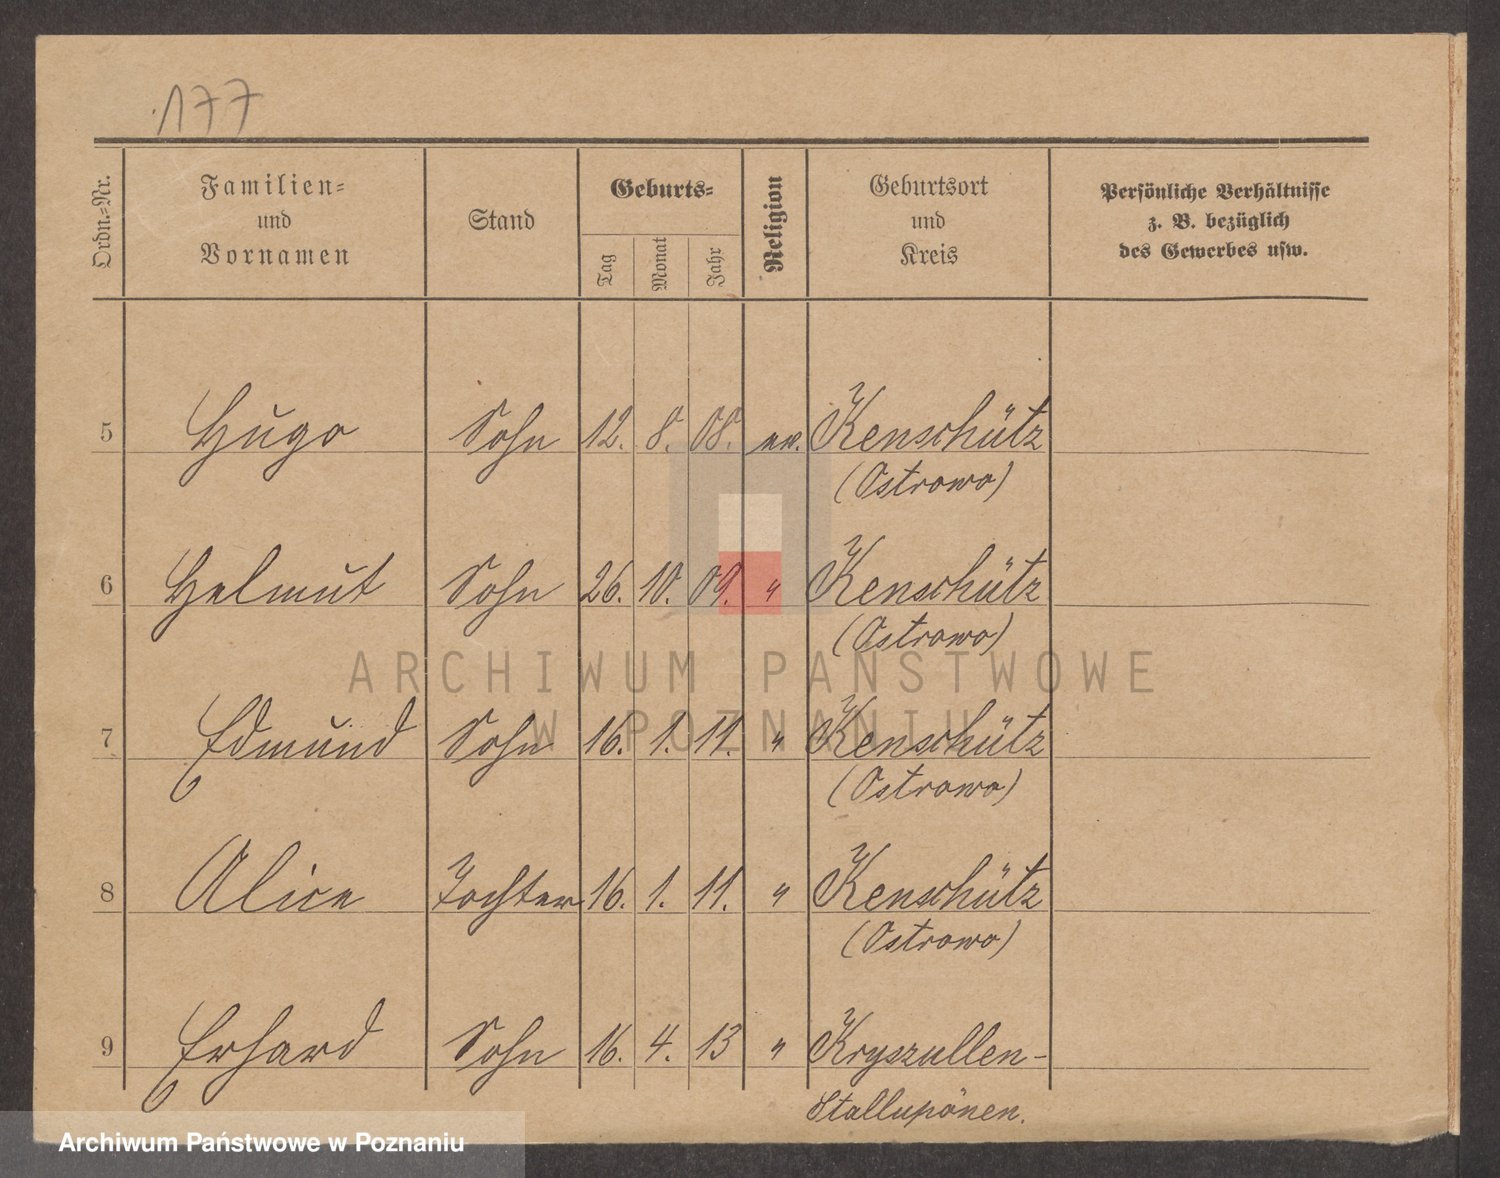 177
Ordn.-Nr.
Familien-
und
Vornamen
Stand
Geburts-
Tag
Monat
Jahr
Religion
Geburtsort
und
Kreis
Persönliche Verhältnisse
z. B. bezüglich
des Gewerbes usw.
5 Hugo Sohn 12. 8. 08. ev. Kenschütz
(Ostrowo)
6 Helmut Sohn 26. 10. 09. " Kenschütz
(Ostrowo)
ARCHIWUM PAŃSTWOWE
W POZNANIU
7 Edmund Sohn 16. 1. 11. " Kenschütz
(Ostrowo)
8 Alice Tochter 16. 1. 11. " Kenschütz
(Ostrowo)
9 Erhard Sohn 16. 4. 13 " Kryszullen-
Stallupönen.
Archiwum Państwowe w Poznaniu